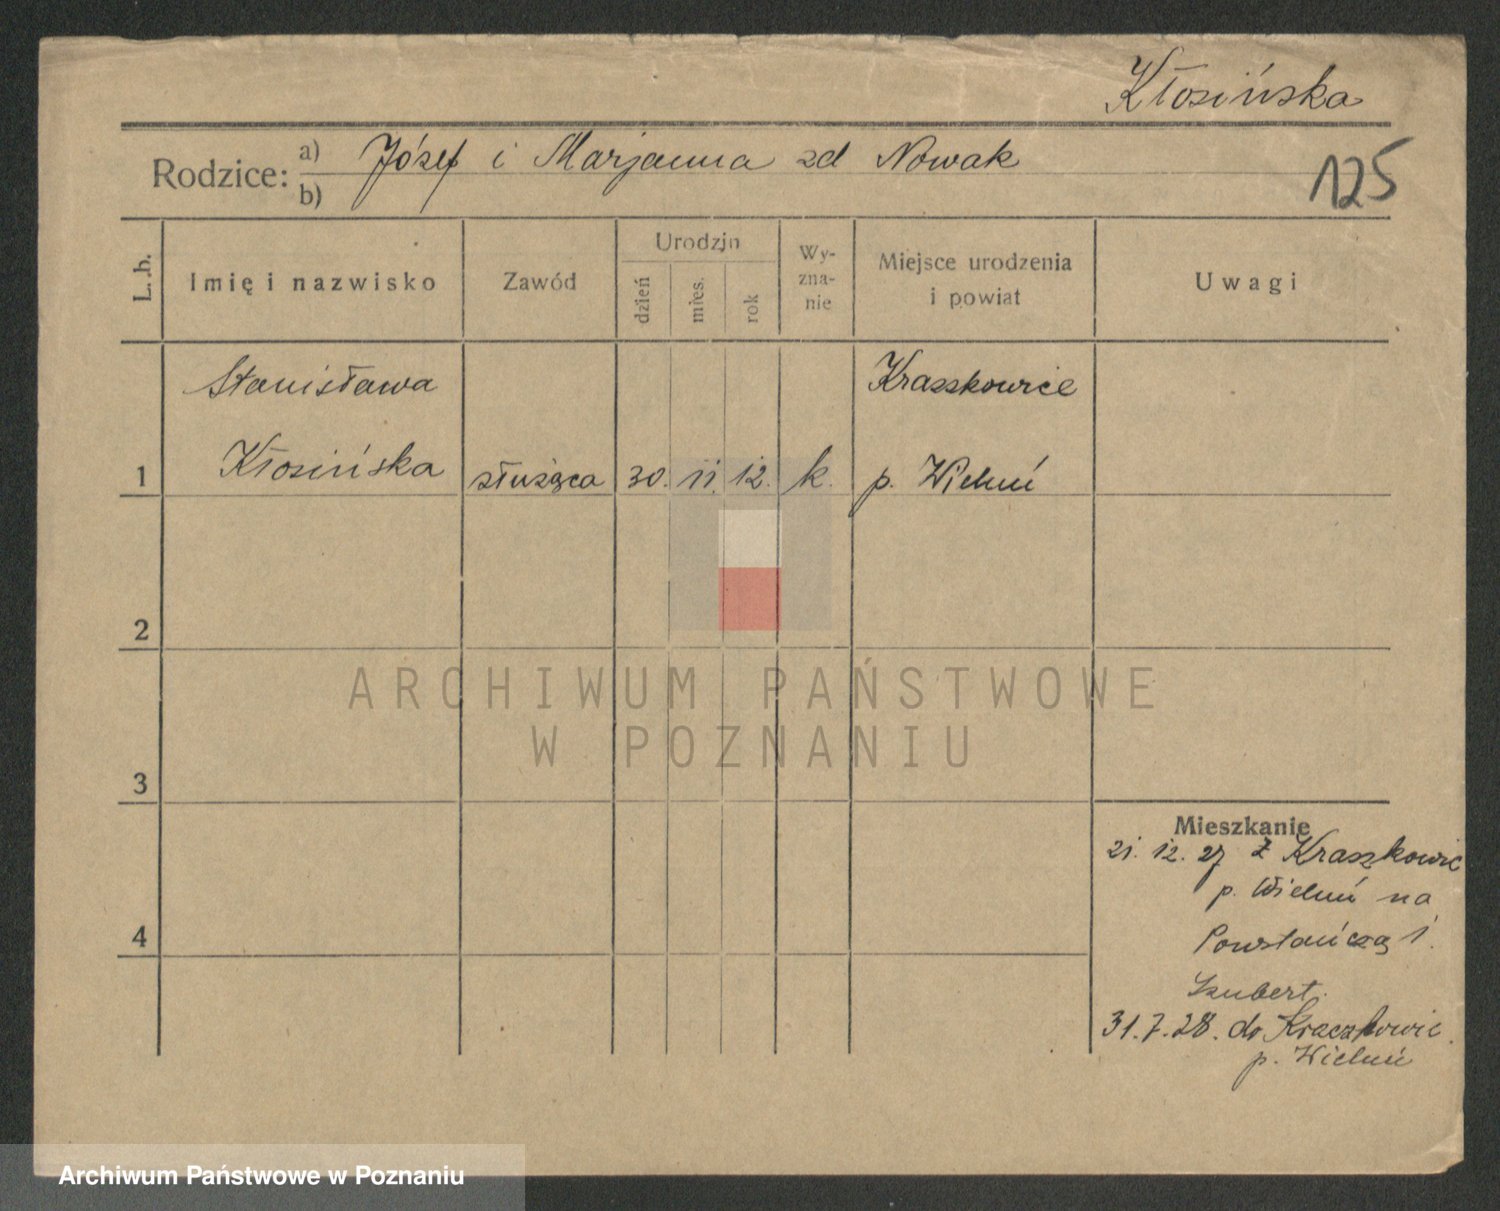 Kłosińska
Rodzice: a) Józef i Marjanna zd Nowak
b)
125
L. b. Imię i nazwisko Zawód Urodzin dzień mies. rok Wy-zna-nie Miejsce urodzenia i powiat Uwagi
Stanisława Kraszkowice
1 Kłosińska służąca 30. 11. 12. k. p. Wieluń
2
3
4
Mieszkanie
21. 12. 27 z Kraszkowic
p. Wieluń na
Powstańczą 1.
Szubert.
31.7.28. do Kraszkowic
p. Wieluń
ARCHIWUM PAŃSTWOWE
W POZNANIU
Archiwum Państwowe w Poznaniu